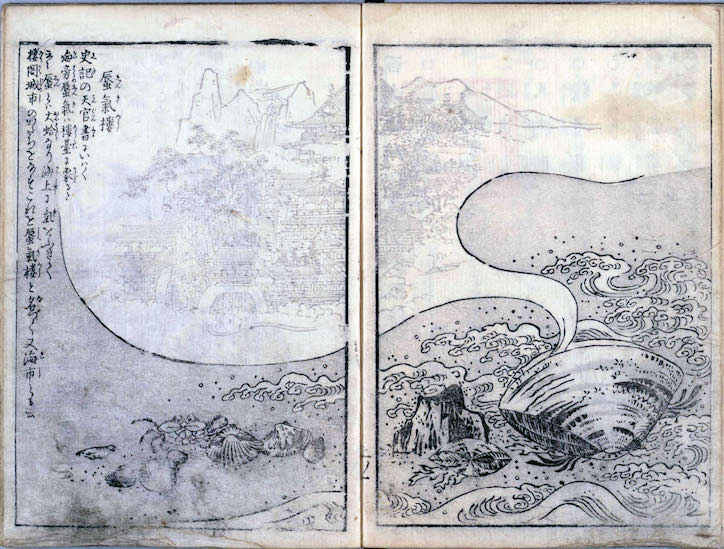 蜃氣樓
史記の天官書にいはく
海旁蜃氣ハ樓臺に象ると
云々蜃とハ大蛤なり海上に氣をふきて
樓閣城市のかたちをなすこれを蜃氣樓と名づく又海市とも云